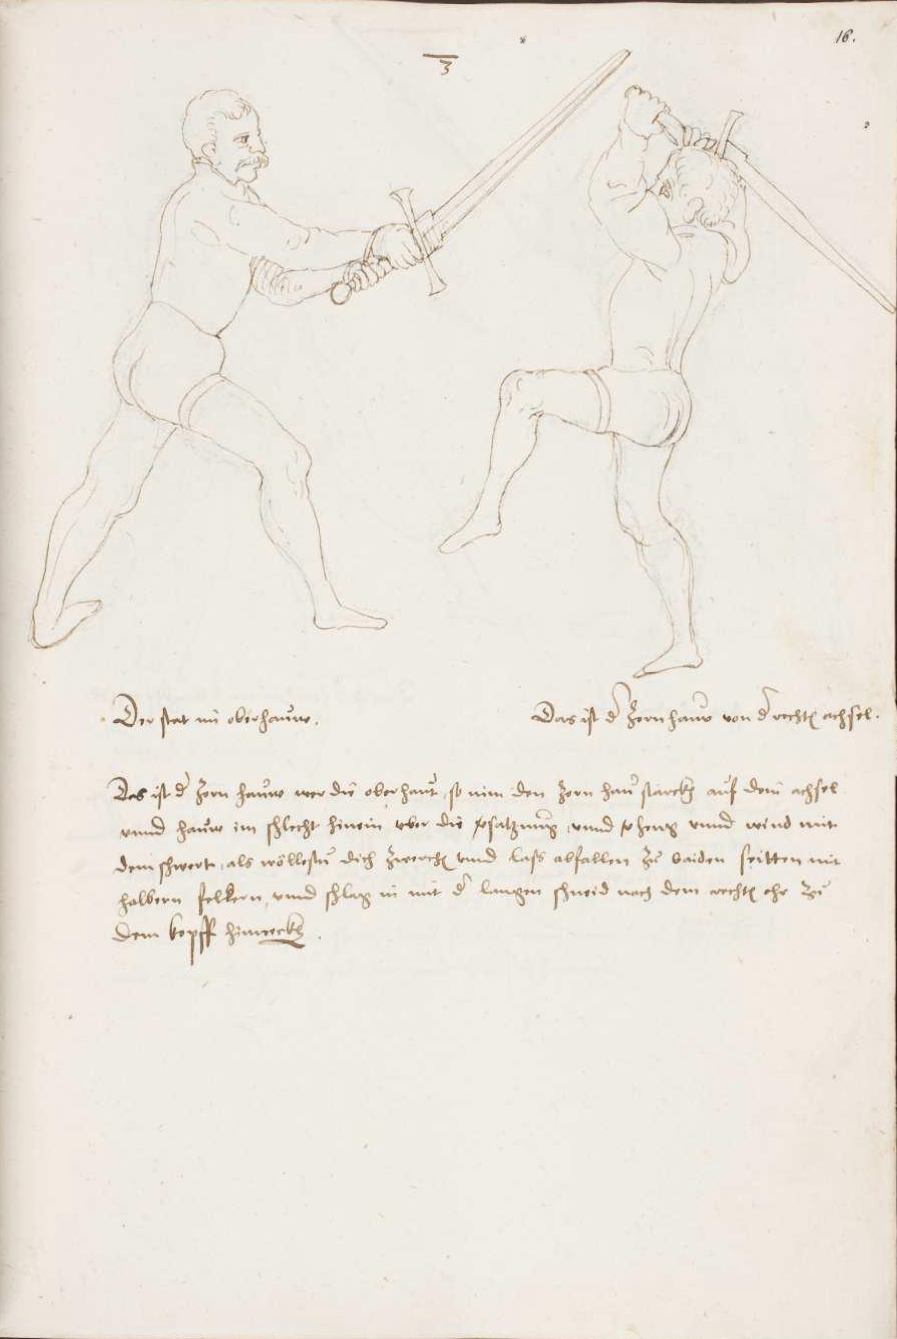 16.
3
Der stat im oberhauw.
Das ist d' Zornhauw von d' rechtn achsel.
Das ist d' Zorn hauw wer dir oberhaut, so nim den Zorn hau starckh auf dein achsel
unnd hauw im schlecht hinein uber die versatzung, unnd verheng unnd wind mit
dem schwert, als wöllestu dich zwerchn unnd lass abfallen zu baiden seitten mit
halbern felkern, unnd schlag in mit d' langen schneid nach dem rechtn ohr zu
dem kopff hinweckh.